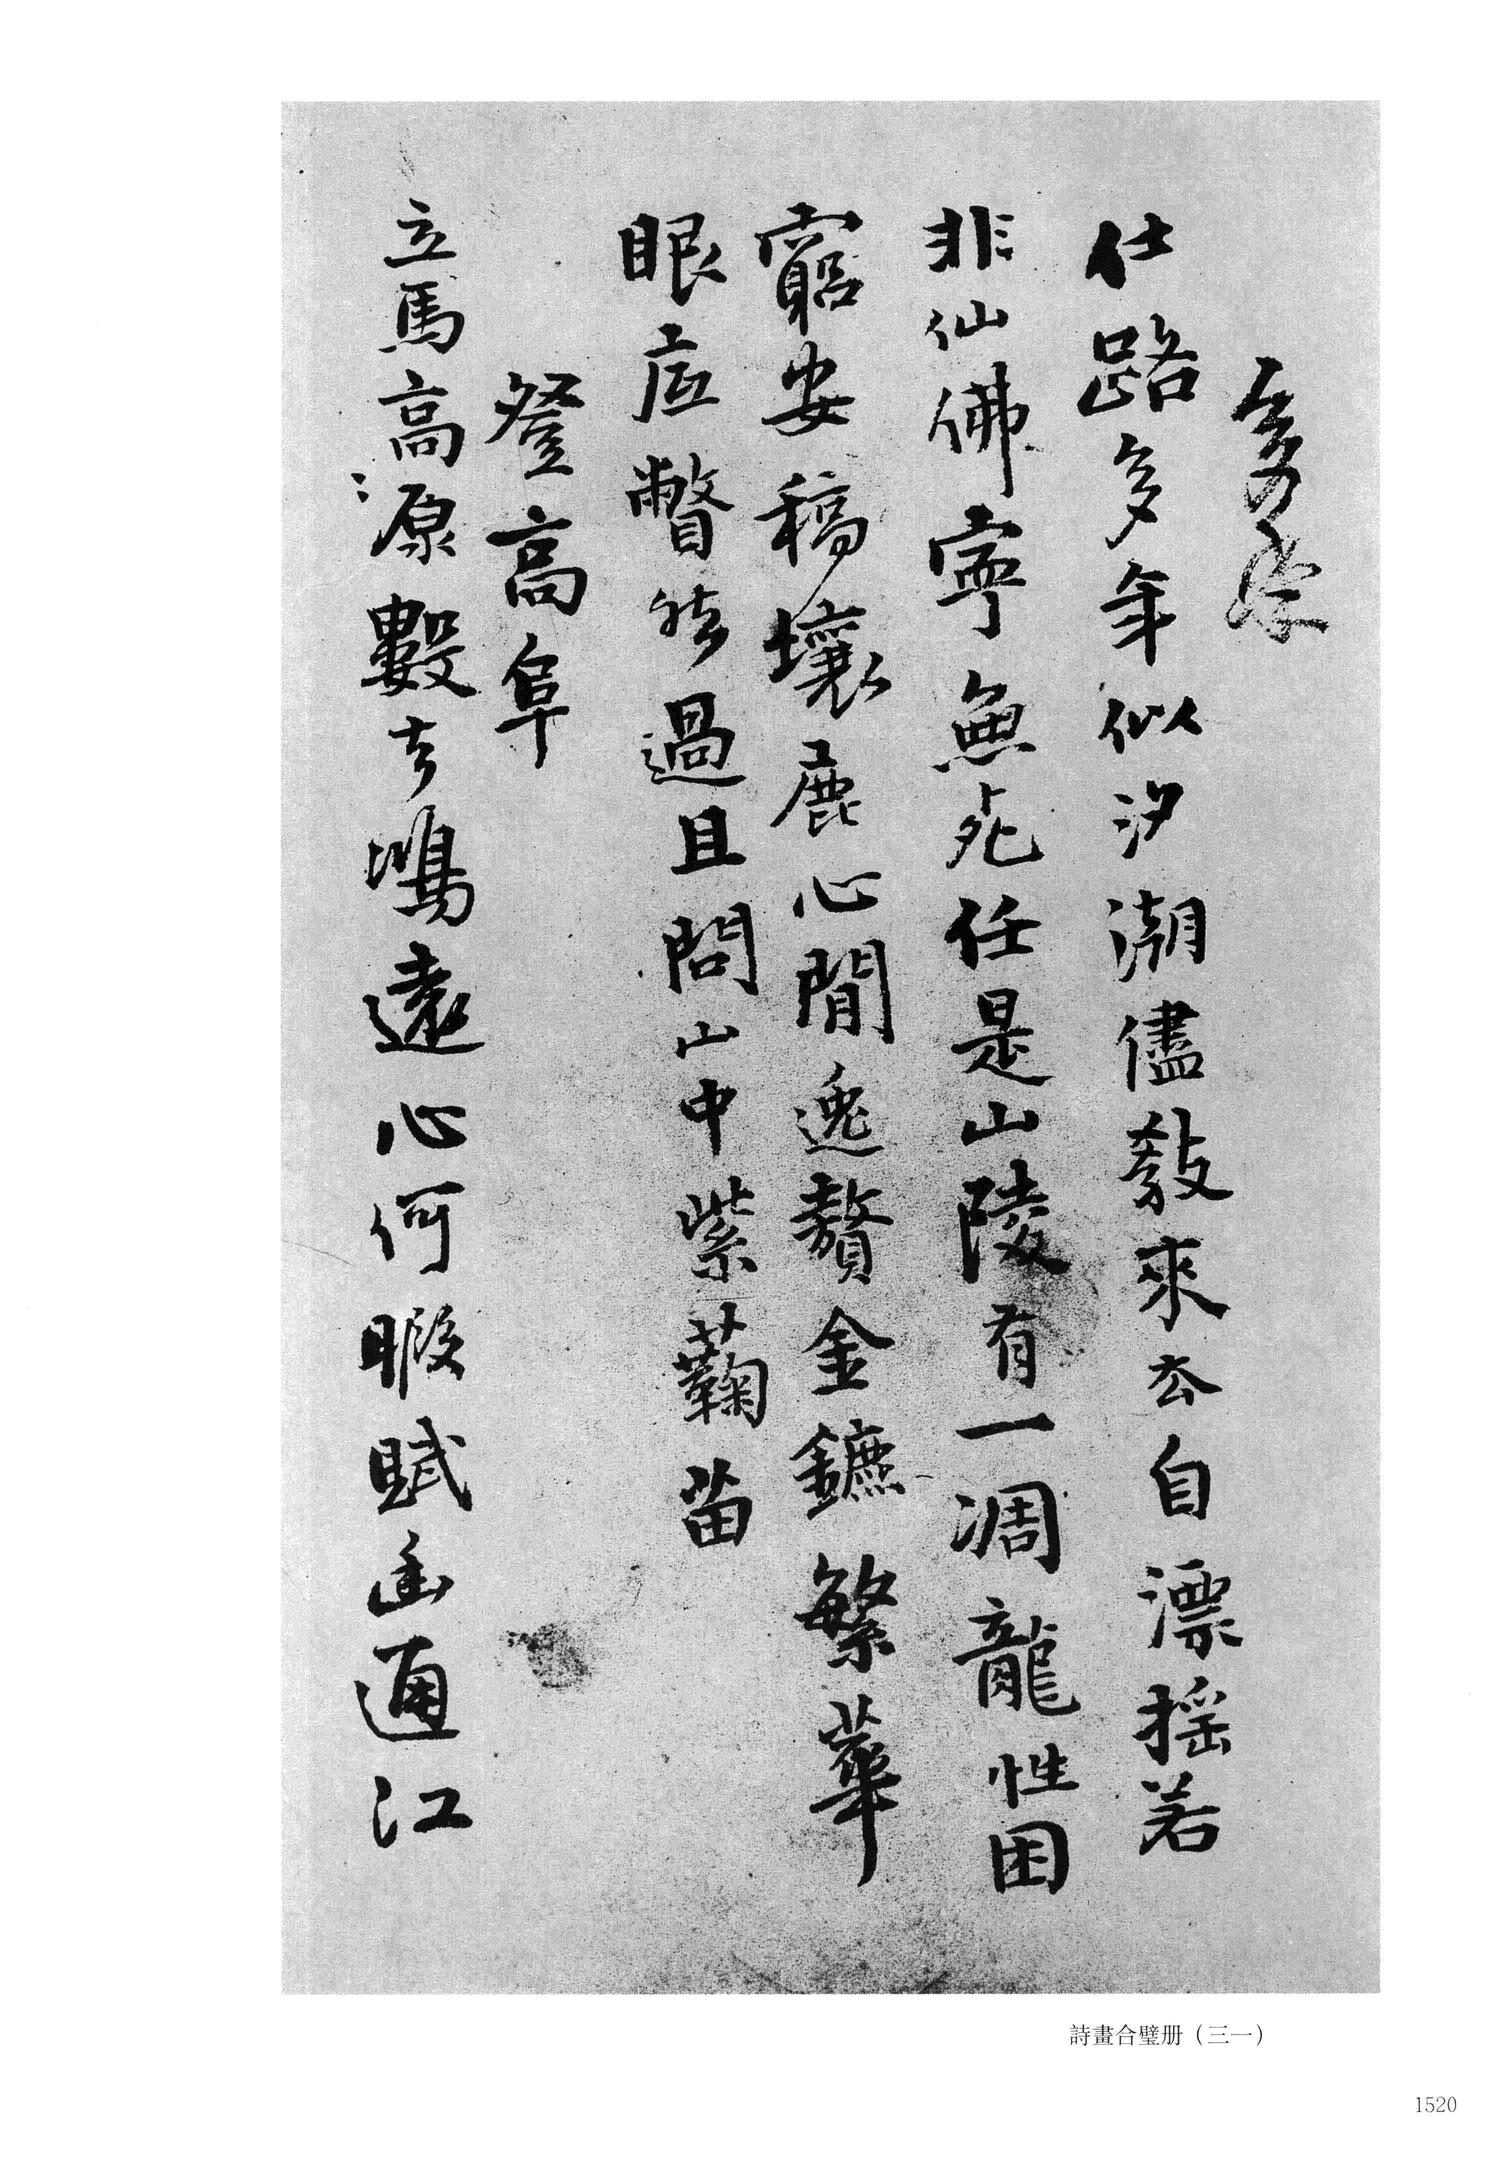 多年
仕路多年似汐潮儘教來去自漂搖若
非仙佛寧無死任是山陵有一凋龍性困
窮安稿壤鹿心閒逸贅金鑣繁華
眼底瞥然過且問山中紫蘜苗
登高阜
立馬高源數去鴻遠心何暇賦幽通江
詩畫合璧册（三一）
1520